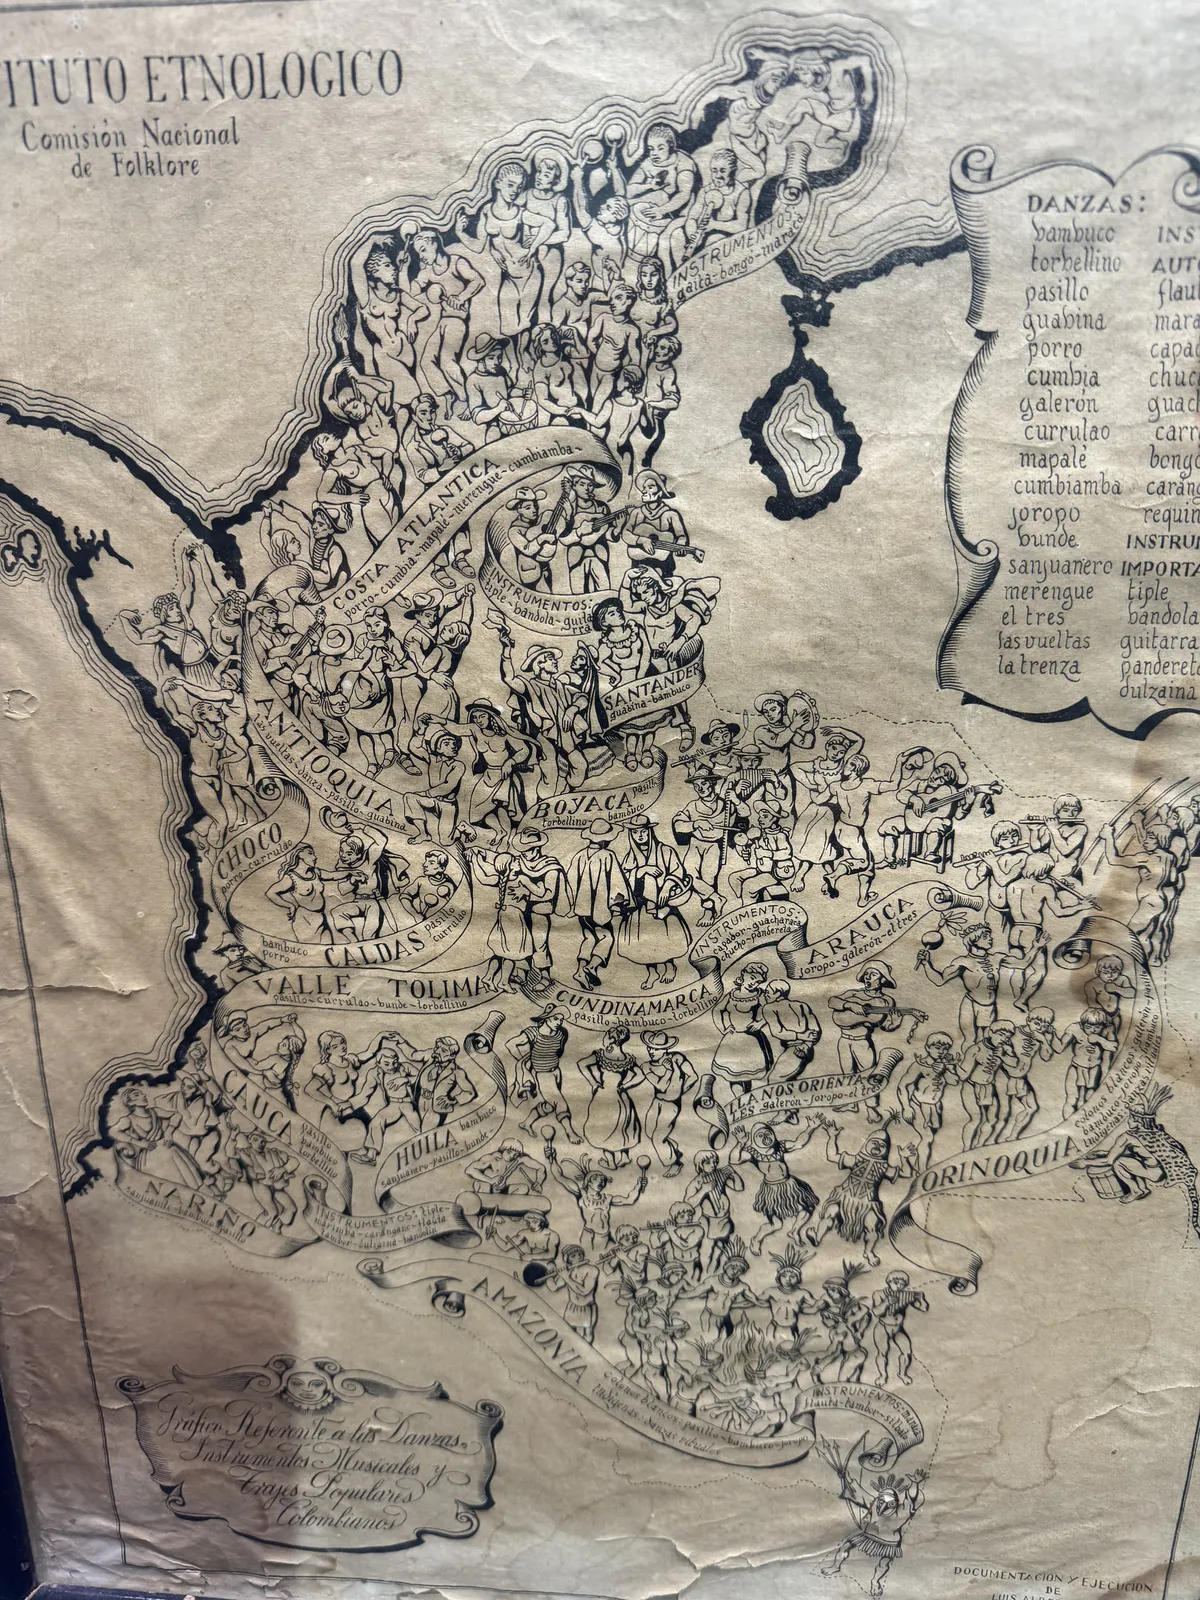 ITUTO ETNOLOGICO
Comisión Nacional
de Folklore
DANZAS:
bambuco
torbellino
pasillo
guabina
porro
cumbia
galerón
currulao
mapalé
cumbiamba
joropo
bunde
sanjuanero
merengue
el tres
las vueltas
la trenza
INS
AUTO
flau
mara
capa
chuc
guac
carr
bongo
carang
requin
INSTRU
IMPORTA
tiple
bandola
guitarra
panderet
dulzaina
INSTRUMENTOS:
gaita-bongó-maraca
COSTA ATLANTICA
porro-cumbia-mapalé-merengue-cumbiamba-
INSTRUMENTOS:
tiple-bandola-guita
rra
SANTANDER
guabina-bambuco
ANTIOQUIA
las vueltas-danza-pasillo-guabina
BOYACA
pasillo
torbellino-bambuco
CHOCO
porro-currulao
CALDAS
bambuco
porro
pasillo
currulao
INSTRUMENTOS:
capador-guacharaca
chucho-pandereta
ARAUCA
joropo-galerón-el tres
VALLE TOLIMA
pasillo-currulao-bunde-torbellino
CUNDINAMARCA
pasillo-bambuco-torbellino
LLANOS ORIENTA
LES galerón-joropo-el tres
CAUCA
pasillo
bambuco
torbellino
HUILA
bambuco
sanjuanero-pasillo-bunde
ORINOQUIA
NARIÑO
INSTRUMENTOS: tiple-
AMAZONIA
colonos blancos-pasillo-bambuco-joropo
indígenas-danzas rituales
INSTRUMENTOS:
flauta-tambor-silbato
Gráfico Referente a las Danzas,
Instrumentos Musicales y
Trajes Populares
Colombianos
DOCUMENTACION Y EJECUCION
DE